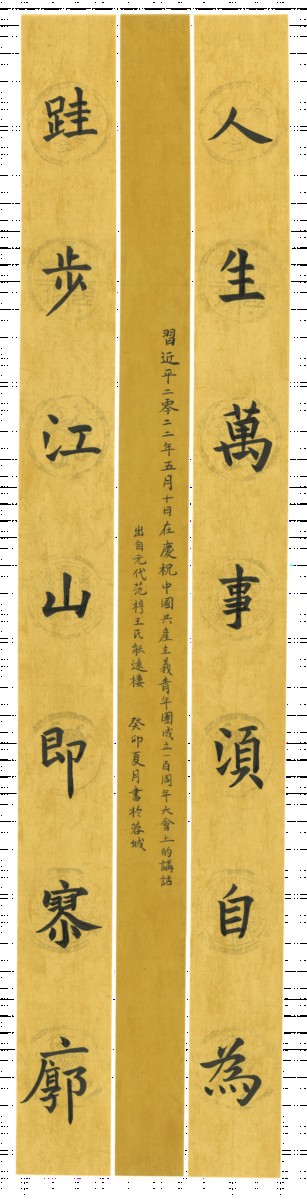 人生萬事須自為
習近平二零二二年五月十日在慶祝中國共產主義青年團成立一百周年大會上的講話
出自元代范梈王氏能遠樓 癸卯夏月書於蓉城
跬步江山即寥廓